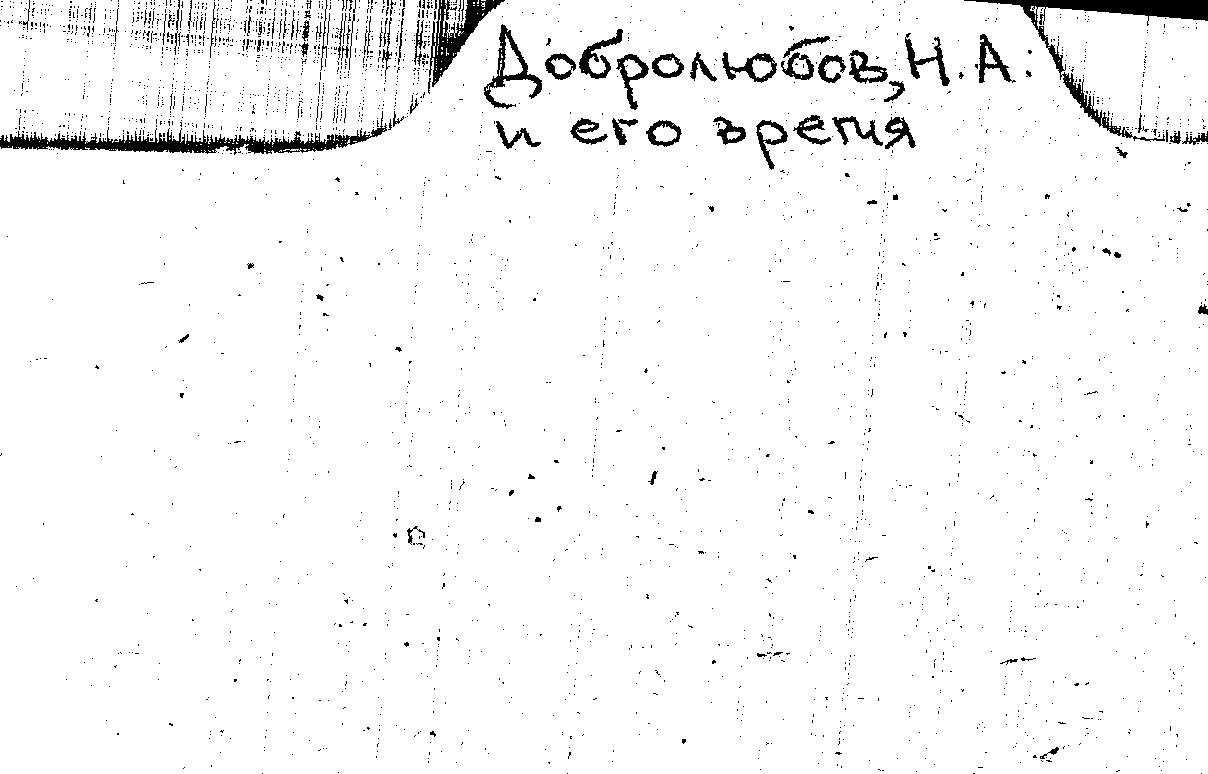 Добролюбов, Н. А.:
и его время